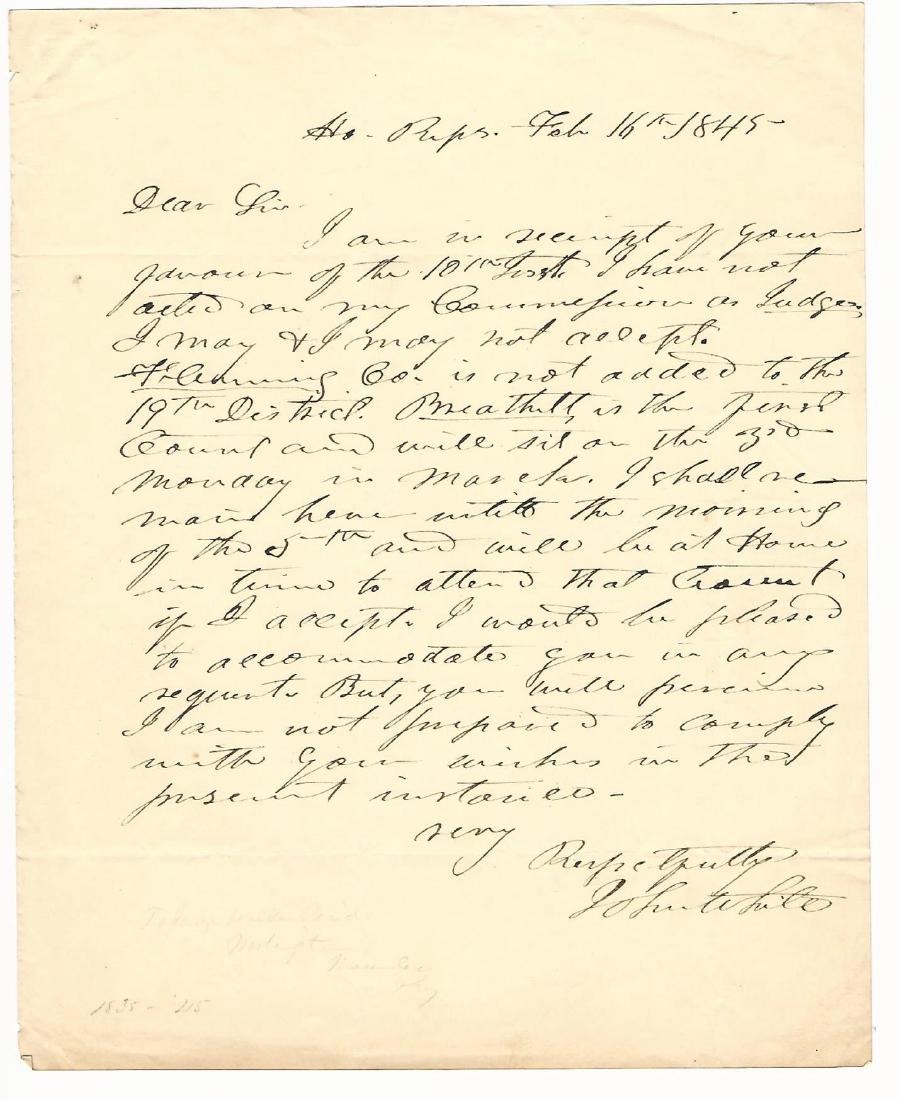 Ho. Reps. Feb 16th 1845
Dear Sir.
I am in receipt of your
favour of the 10th Inst. I have not
acted on my Commission as Judge,
I may & I may not accept.
Flemming Co. is not added to the
19th District. Breathitt, is the first
Court and will sit on the 3rd
Monday in March. I shall re-
main here untill the morning
of the 5th and will be at Home
in time to attend that Court
if I accept. I would be pleased
to accommodate you in any
request. But, you will perceive
I am not prepared to comply
with your wishes in the
present instance -
very
Respectfully
John White
1835 - '45